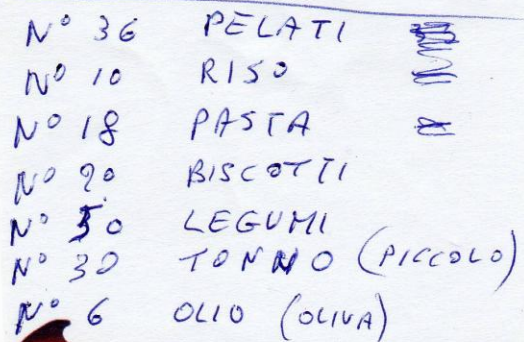 N° 36 PELATI
N° 10 RISO
N° 18 PASTA
N° 20 BISCOTTI
N° 50 LEGUMI
N° 30 TONNO (PICCOLO)
N° 6 OLIO (OLIVA)